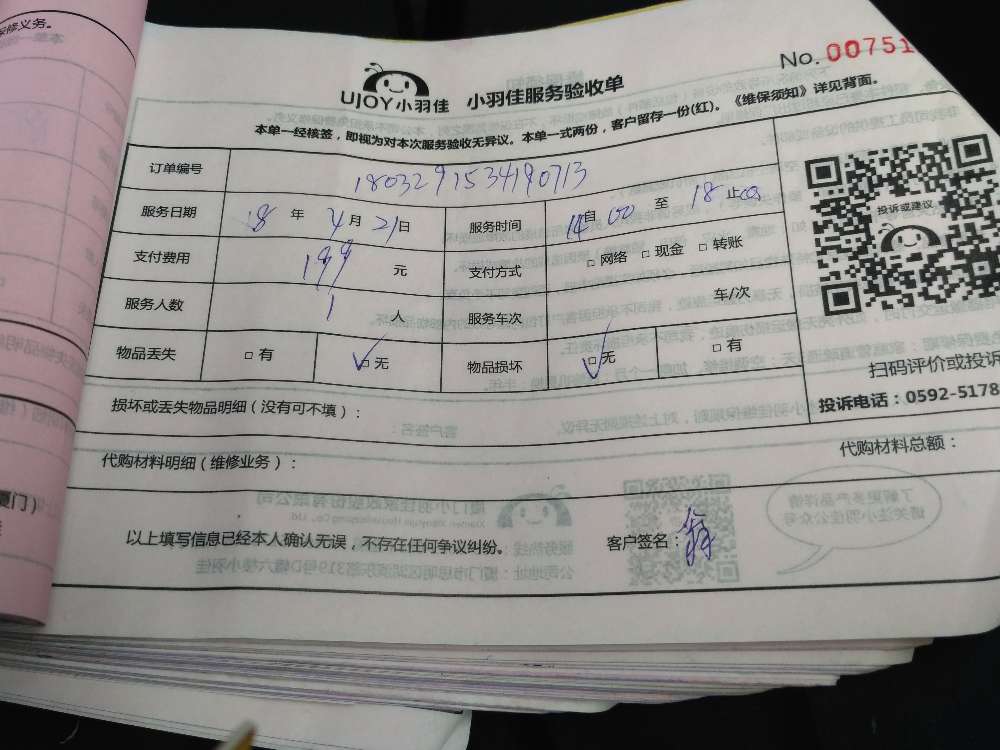 保修义务。
No. 00751
UJOY小羽佳 小羽佳服务验收单
本单一经核签，即视为对本次服务验收无异议。本单一式两份，客户留存一份(红)。《维保须知》详见背面。
订单编号 1803291534190713
服务日期 18 年 4 月 21 日 服务时间 14 自 00 至 18 止 00
支付费用 199 元 支付方式 □ 网络 □ 现金 □ 转账
服务人数 1 人 服务车次 车/次
物品丢失 □ 有 ☑ 无 物品损坏 ☑ 无 □ 有
投诉或建议
扫码评价或投诉
投诉电话：0592-5178
损坏或丢失物品明细（没有可不填）：
代购材料明细（维修业务）： 代购材料总额：
以上填写信息已经本人确认无误，不存在任何争议纠纷。 客户签名：
厦门）